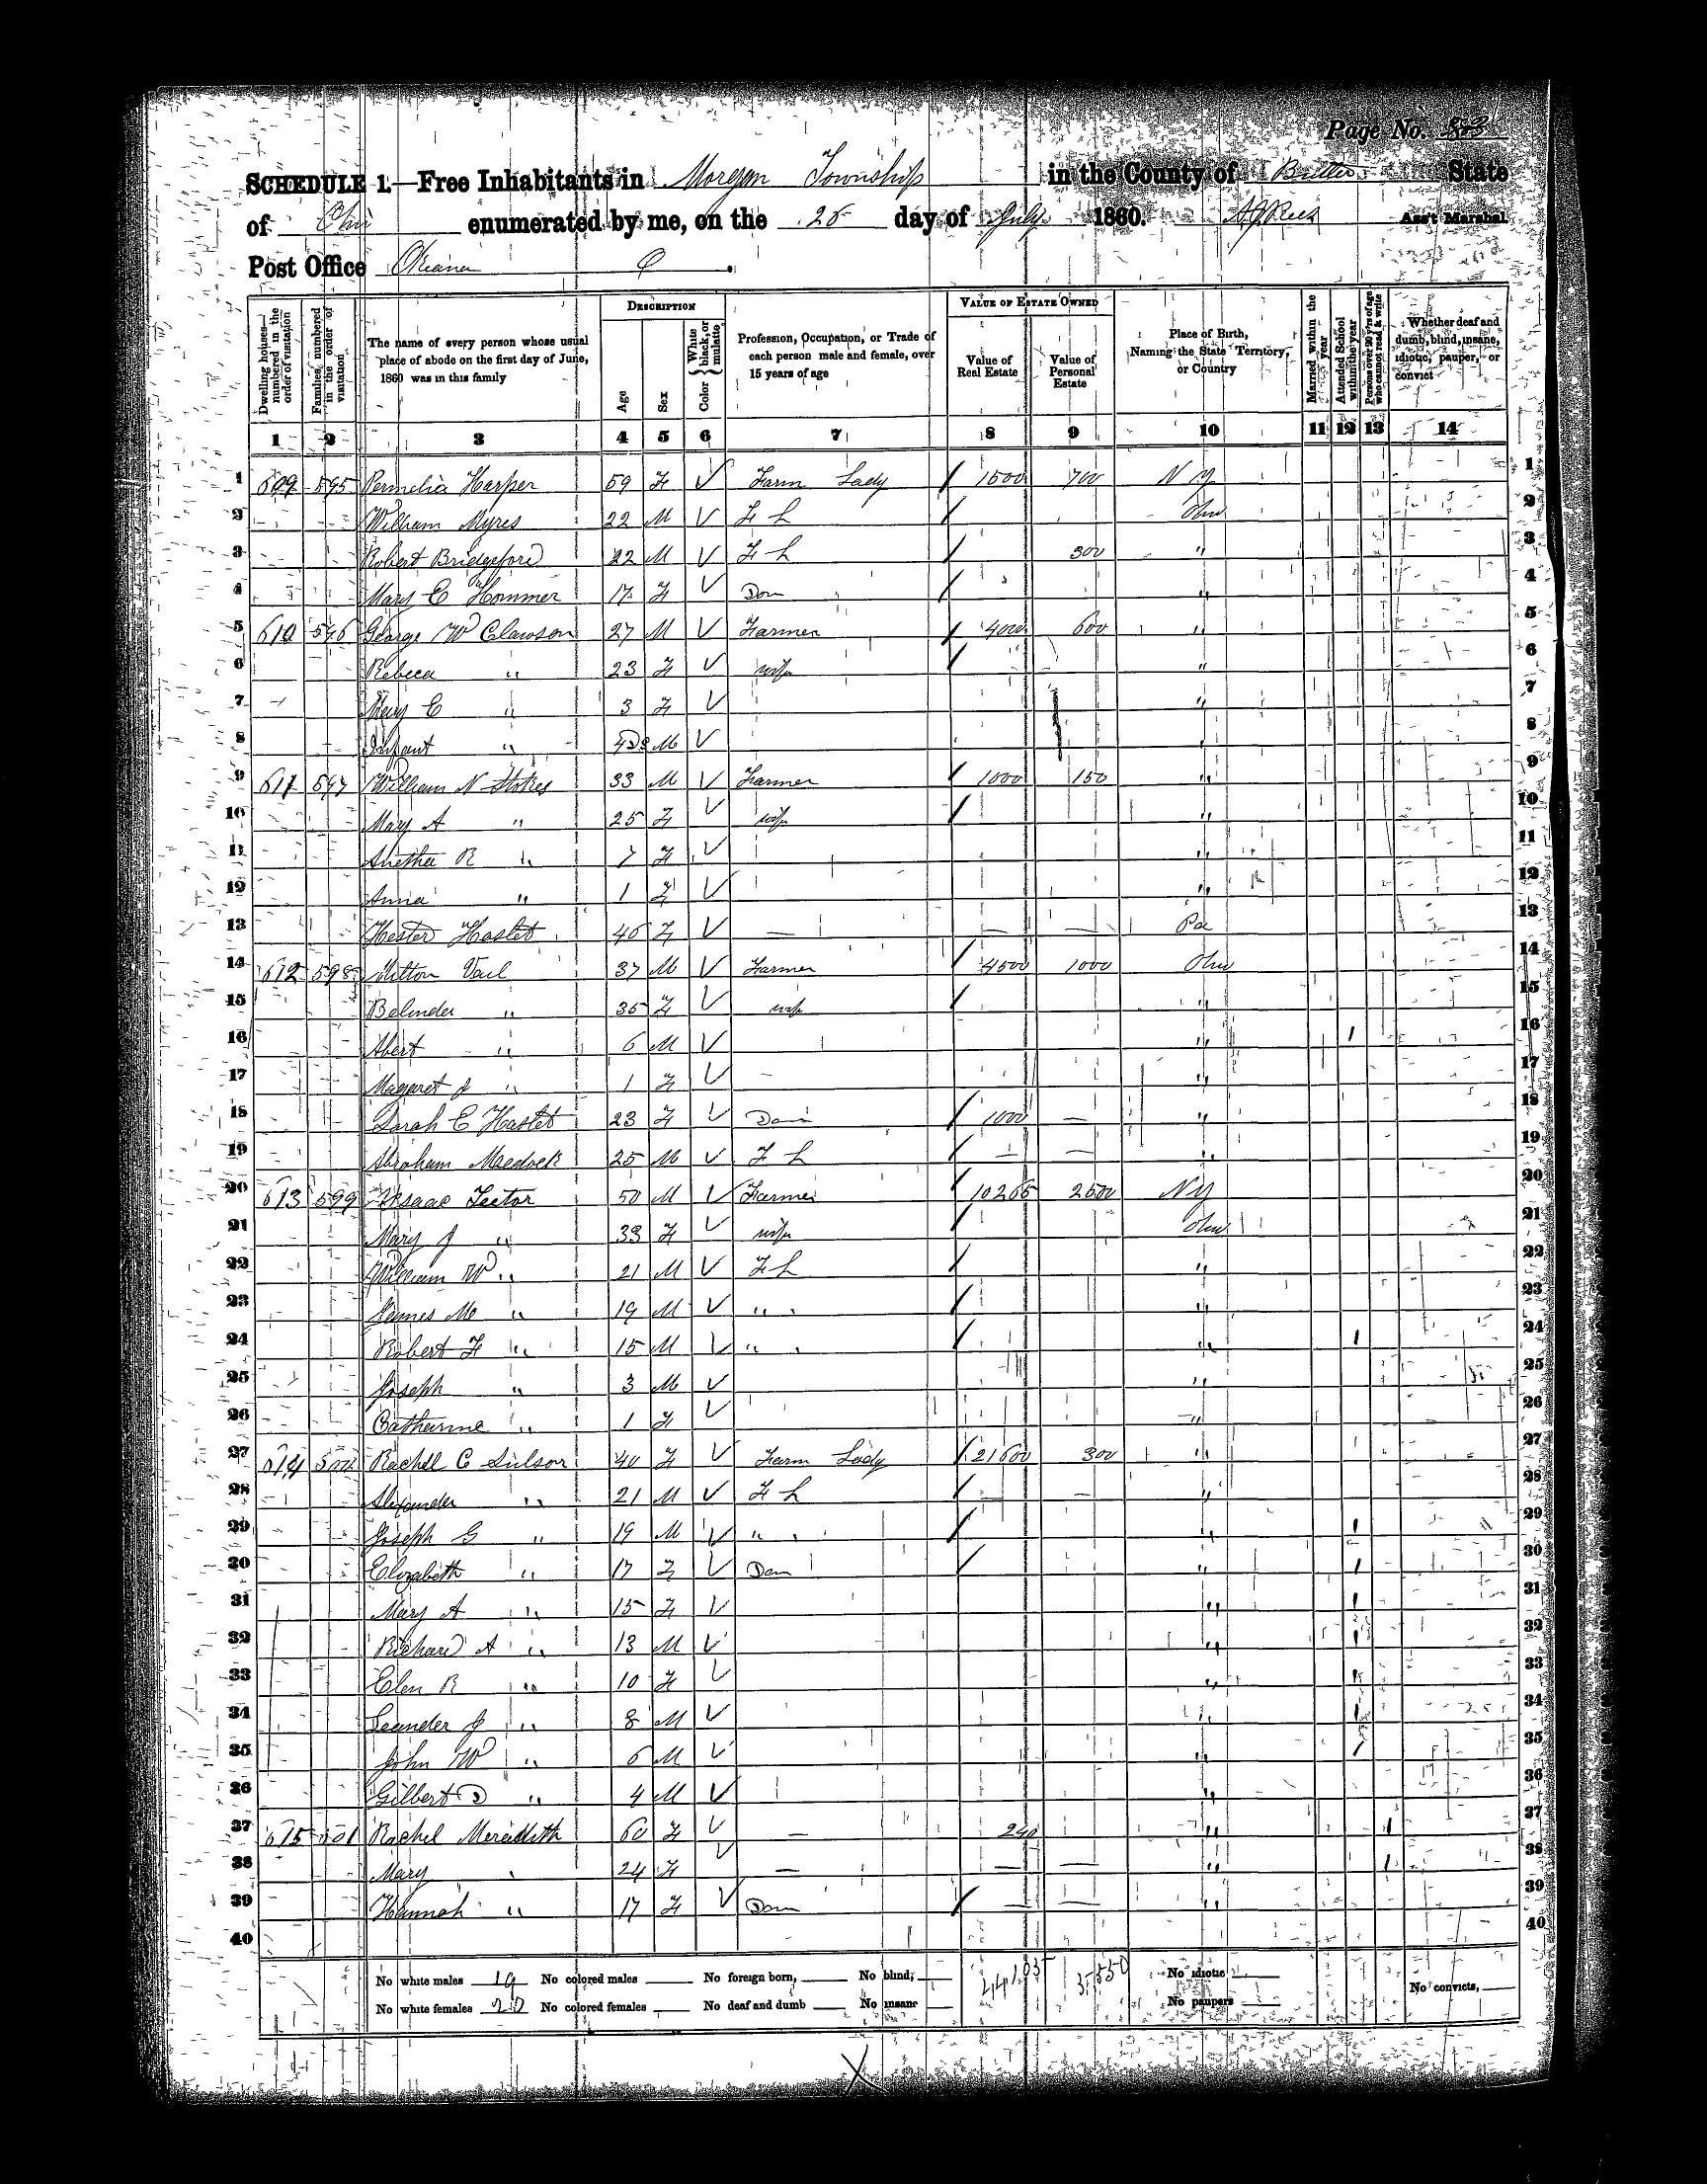 Page No. 83
SCHEDULE 1.—Free Inhabitants in Morgan Township in the County of Butler State
of Ohio enumerated by me, on the 25 day of July 1860. Ass't Marshal
Post Office Okeana O.
Dwelling houses—numbered in the order of visitation | Families numbered in the order of visitation | The name of every person whose usual place of abode on the first day of June, 1860 was in this family | DESCRIPTION | Age | Sex | Color White black, or mulatto | Profession, Occupation, or Trade of each person male and female, over 15 years of age | VALUE OF ESTATE OWNED | Value of Real Estate | Value of Personal Estate | Place of Birth, Naming the State Territory, or Country | Married within the year | Attended School within the year | Persons over 20 y'rs of age who cannot read & write | Whether deaf and dumb, blind, insane, idiotic, pauper, or convict
1 2 3 4 5 6 7 8 9 10 11 12 13 14
1 609 595 Permelia Harper 59 F √ Farm Lady / 1500 700 N Y 1
2 William Myres 22 M √ F L / Ohio 2
3 Robert Bridgeford 22 M √ F L / 300 " 3
4 Mary E Hommer 17 F √ Dom / " 4
5 610 596 George W Clawson 27 M √ Farmer / 4000 600 " 5
6 Rebeca " 23 F √ wife / " 6
7 Mary E " 3 F √ " 7
8 Infant " 4Ds M √ 8
9 611 597 William N Stokes 33 M √ Farmer / 1000 150 " 9
10 Mary A " 25 F √ wife / " 10
11 Anetha R " 7 F √ " 11
12 Anna " 1 F √ " 12
13 Hester Haslet 46 F √ — — — Pa 13
14 612 598 Milton Vail 37 M √ Farmer / 4500 1000 Ohio 14
15 Belinder " 35 F √ wife / " 15
16 Abert " 6 M √ " 1 16
17 Magaret J " 1 F √ " 17
18 Sarah E Haslet 23 F √ Dom / 1000 — " 18
19 Abraham 25 M √ F L / — — " 19
20 613 599 Isaac Tector 50 M √ Farmer / 10265 2500 N Y 20
21 Mary J " 33 F √ wife / Ohio 21
22 William W " 21 M √ F L / " 22
23 James M " 19 M √ " " / " 23
24 Robert F " 15 M √ " " / " 1 24
25 Joseph " 3 M √ " 25
26 Catharine " 1 F √ " 26
27 614 500 Rachel C 40 F √ Farm Lady / 21600 300 " 27
28 Alexander " 21 M √ F L / — — " 28
29 Joseph G " 19 M √ " " / " 1 29
30 Elizabeth " 17 F √ Dom / " 1 30
31 Mary A " 15 F √ " 1 31
32 Richard A " 13 M √ " 1 32
33 Elen R " 10 F √ " 1 33
34 Leander J " 8 M √ " 1 34
35 John W " 6 M √ " 1 35
36 Gilbert D " 4 M √ " 36
37 615 501 Rachel Meredith 60 F √ — 240 " 1 37
38 Mary " 24 F √ — — — " 1 38
39 Hannah " 17 F √ Dom / — — " 39
40 40
No white males 19 No colored males No foreign born, No blind, 44,105 5,550 No idiotic No convicts,
No white females 20 No colored females No deaf and dumb No insane No paupers